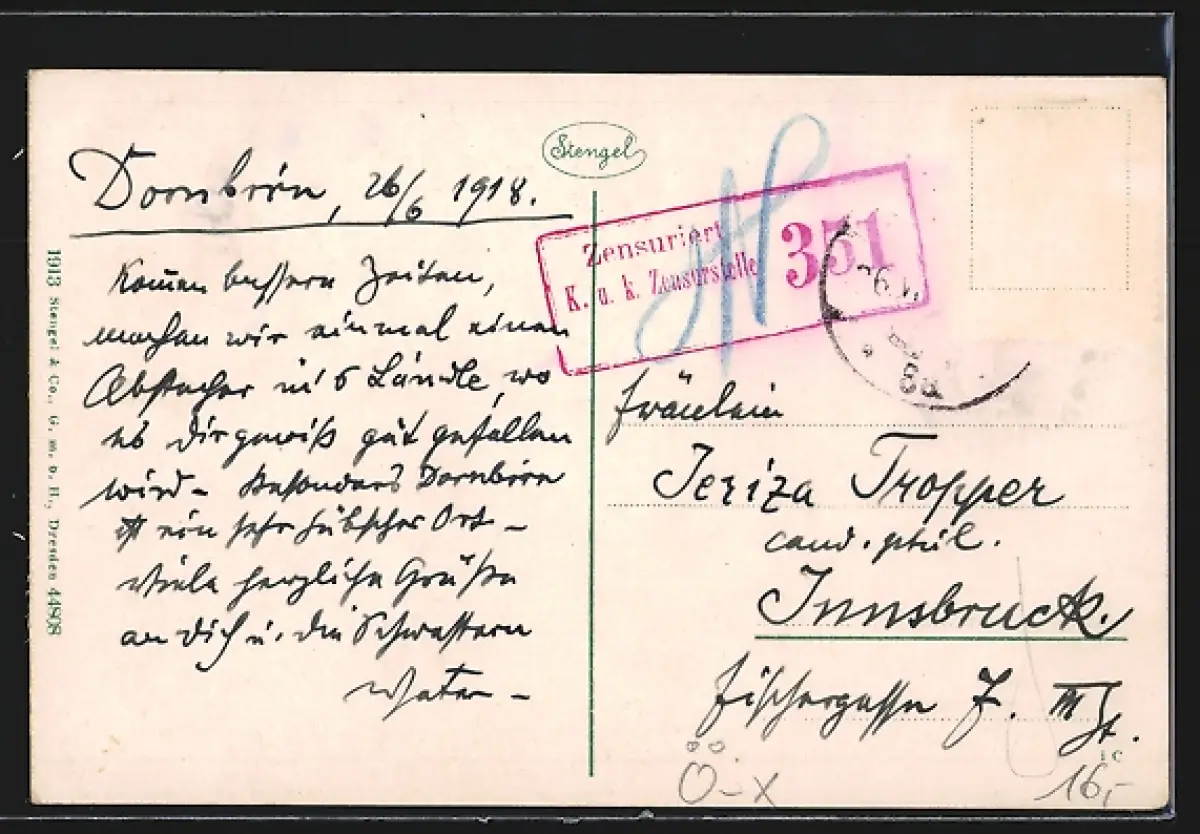 Dornbirn, 26/6 1918.
Kom̄en bessere Zeiten,
machen wir einmal einen
Abstecher in's Ländle, wo
es Dir gewiß gut gefallen
wird – Besonders Dornbirn
ist ein sehr hübscher Ort –
Viele herzliche Grüße
an Dich u. die Schwestern
Vater –
Stengel
Zensuriert
K. u. k. Zensurstelle
351
Fräulein
Tropper
cand. phil.
Innsbruck.
Fischergasse 7. III St.
Ö – x
16,-
1913 Stengel & Co., G. m. b. H., Dresden 44808